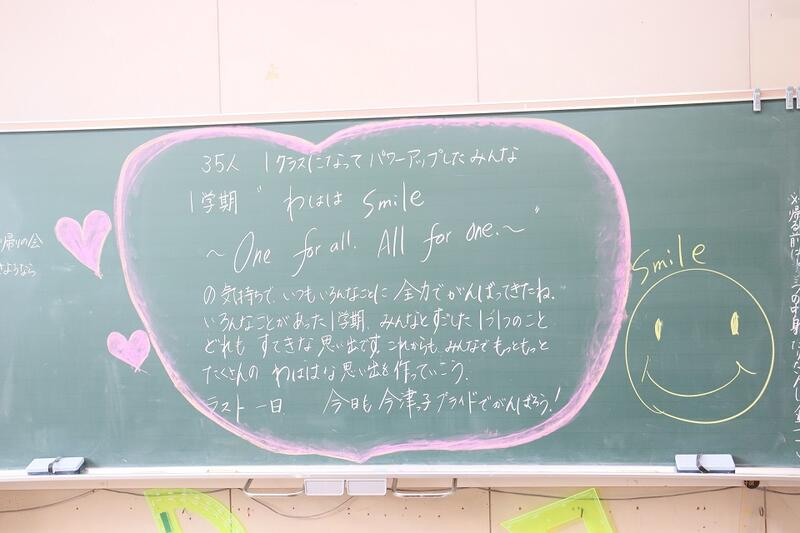 35人 1クラスになって パワーアップしたみんな
1学期 "わははは smile
～One for all. All for one.～"
の気持ちで、いつもいろんなことに 全力でがんばってきたね。
いろんなことがあった1学期、みんなとすごした1つ1つのこと
どれも すてきな思い出です。これからも、みんなでもっともっと
たくさんの わははな思い出を作っていこう。
ラスト一日 今日も今津っ子プライドでがんばろう!
smile
帰りの会
さようなら
※帰る前に